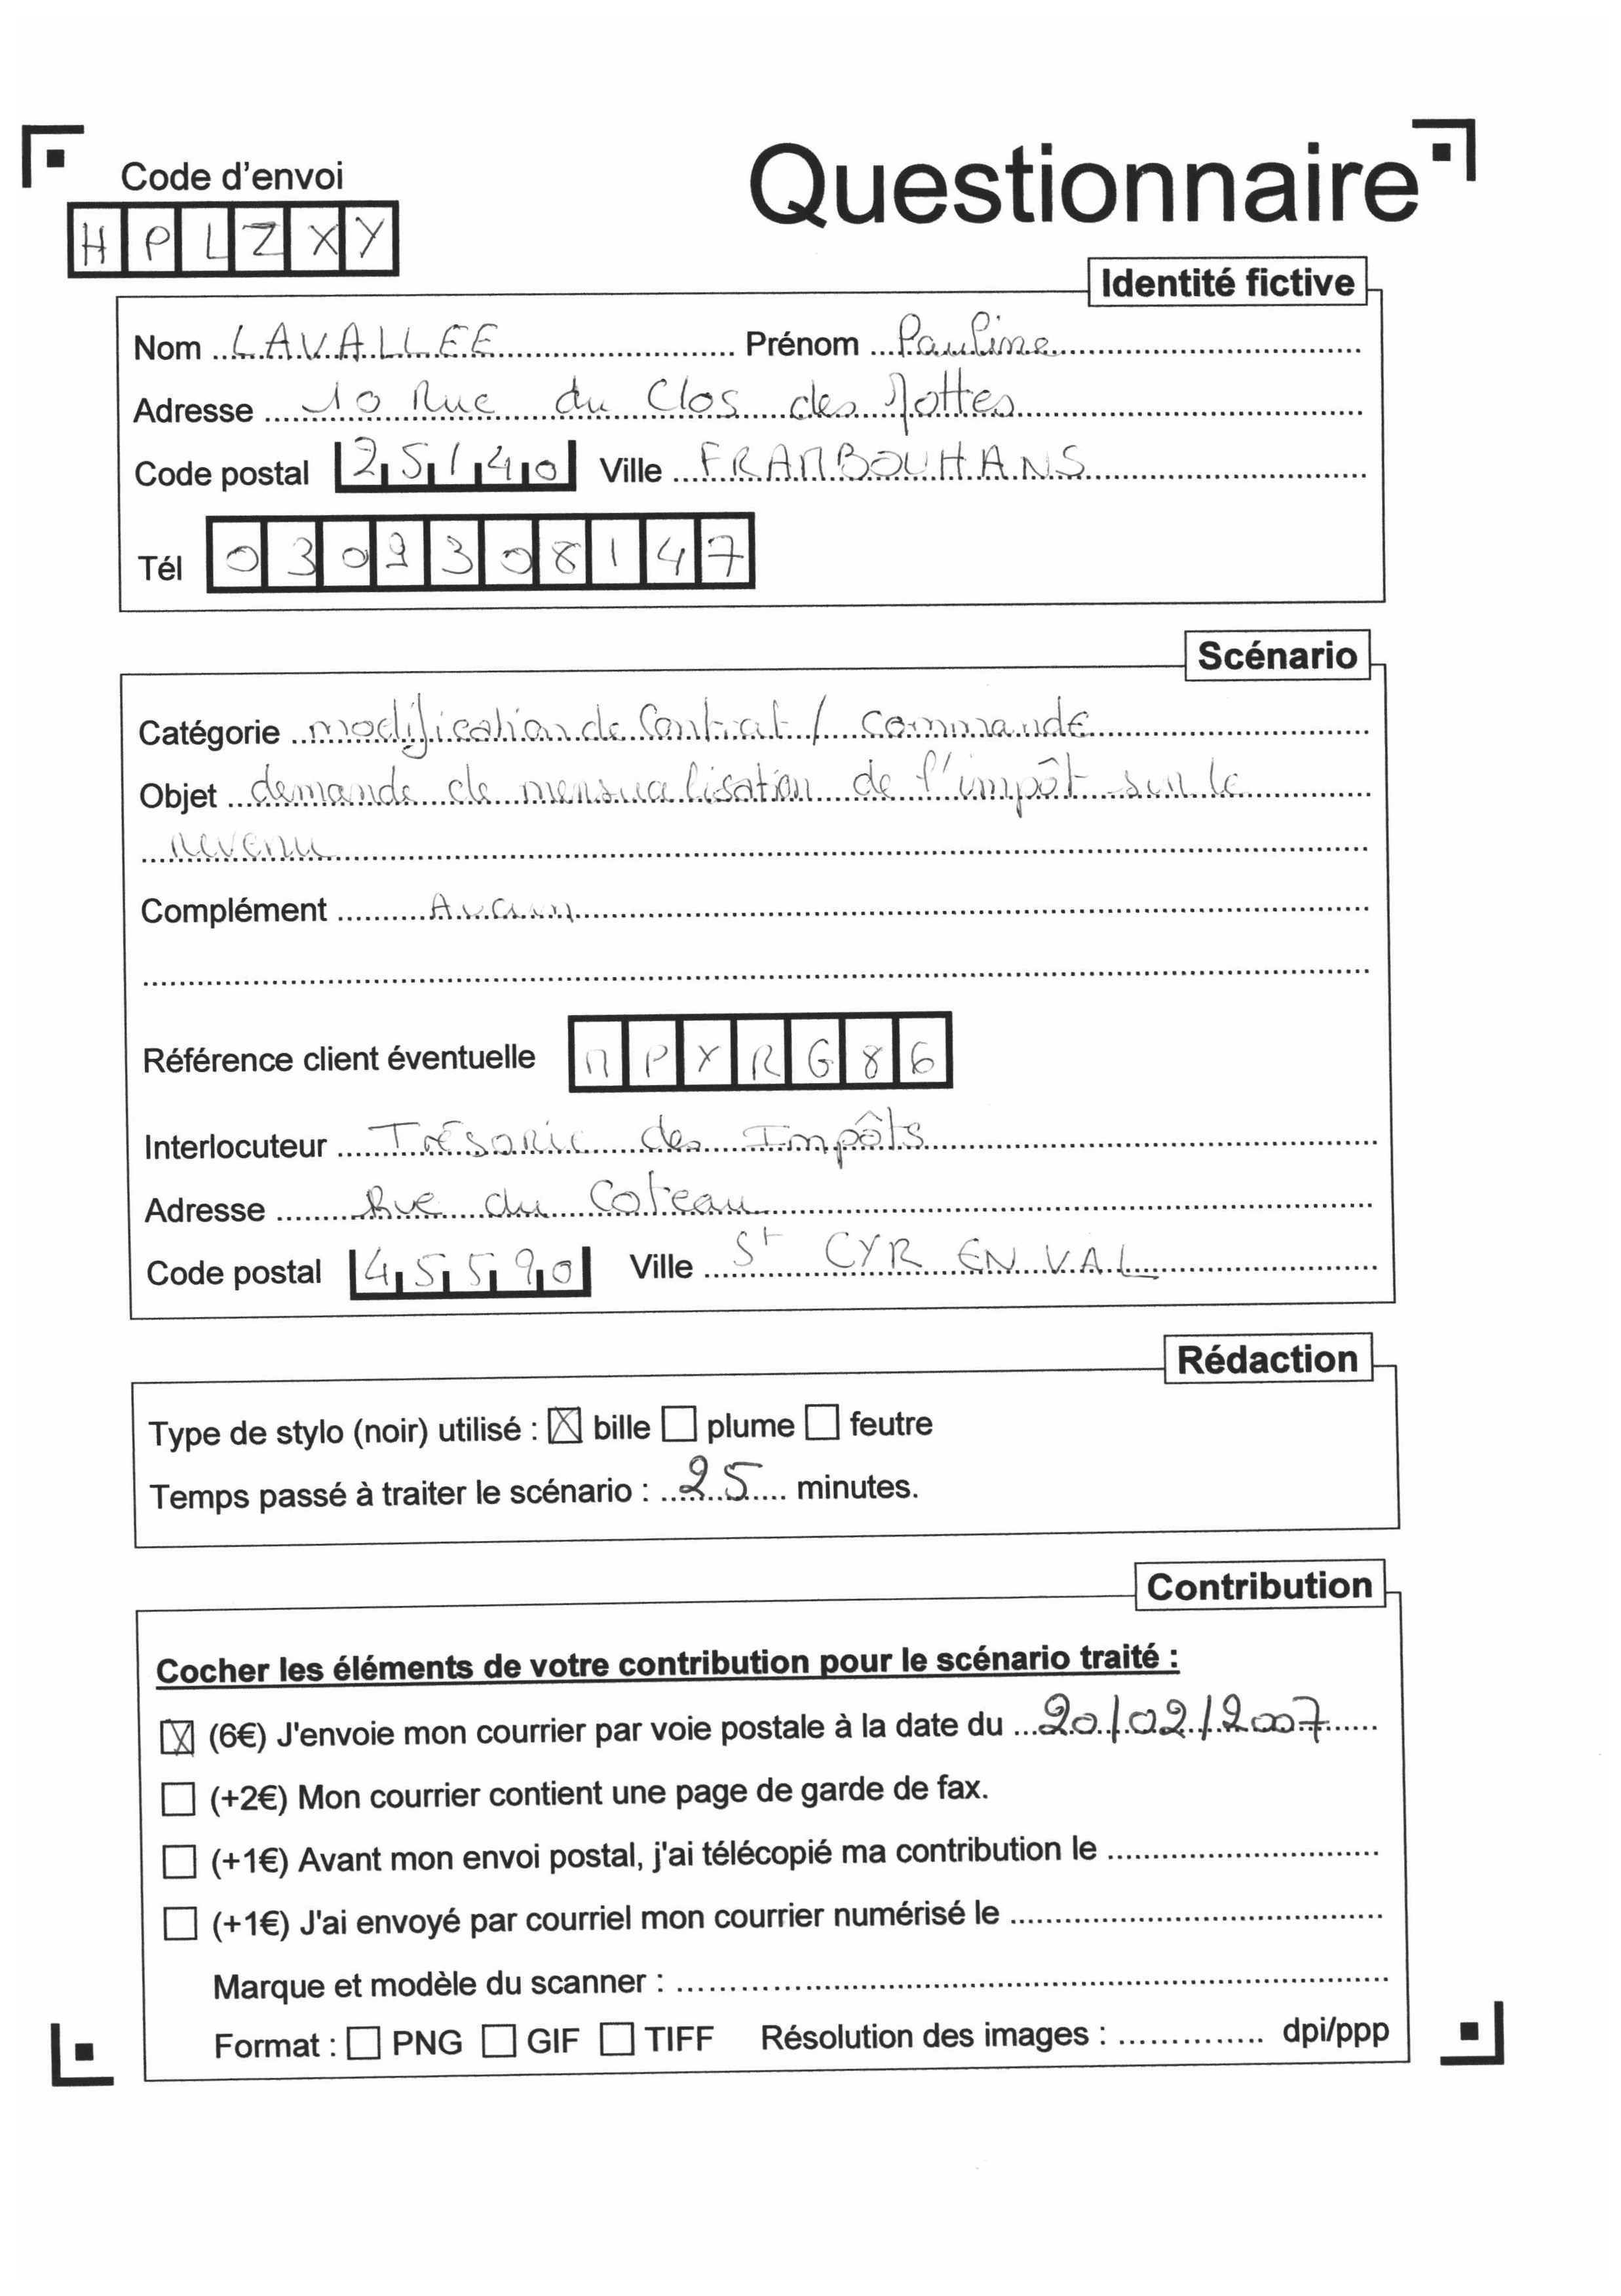 Code d'envoi
Questionnaire
H P L Z X Y
Identité fictive
Nom LAVALLEE Prénom Pauline
Adresse 10 Rue du Clos des Mottes
Code postal 25140 Ville FRAMBOUHANS
Tél 0309308147
Scénario
Catégorie modification de Contrat / Commande
Objet demande de mensualisation de l'impôt sur le
revenu
Complément Aucun
Référence client éventuelle MPXRG86
Interlocuteur Trésorie des Impôts
Adresse Rue du Coteau
Code postal 45590 Ville St CYR EN VAL
Rédaction
Type de stylo (noir) utilisé : ☒ bille ☐ plume ☐ feutre
Temps passé à traiter le scénario : 25 minutes.
Contribution
Cocher les éléments de votre contribution pour le scénario traité :
☒ (6€) J'envoie mon courrier par voie postale à la date du 20/02/2007
☐ (+2€) Mon courrier contient une page de garde de fax.
☐ (+1€) Avant mon envoi postal, j'ai télécopié ma contribution le
☐ (+1€) J'ai envoyé par courriel mon courrier numérisé le
Marque et modèle du scanner :
Format : ☐ PNG ☐ GIF ☐ TIFF Résolution des images : dpi/ppp